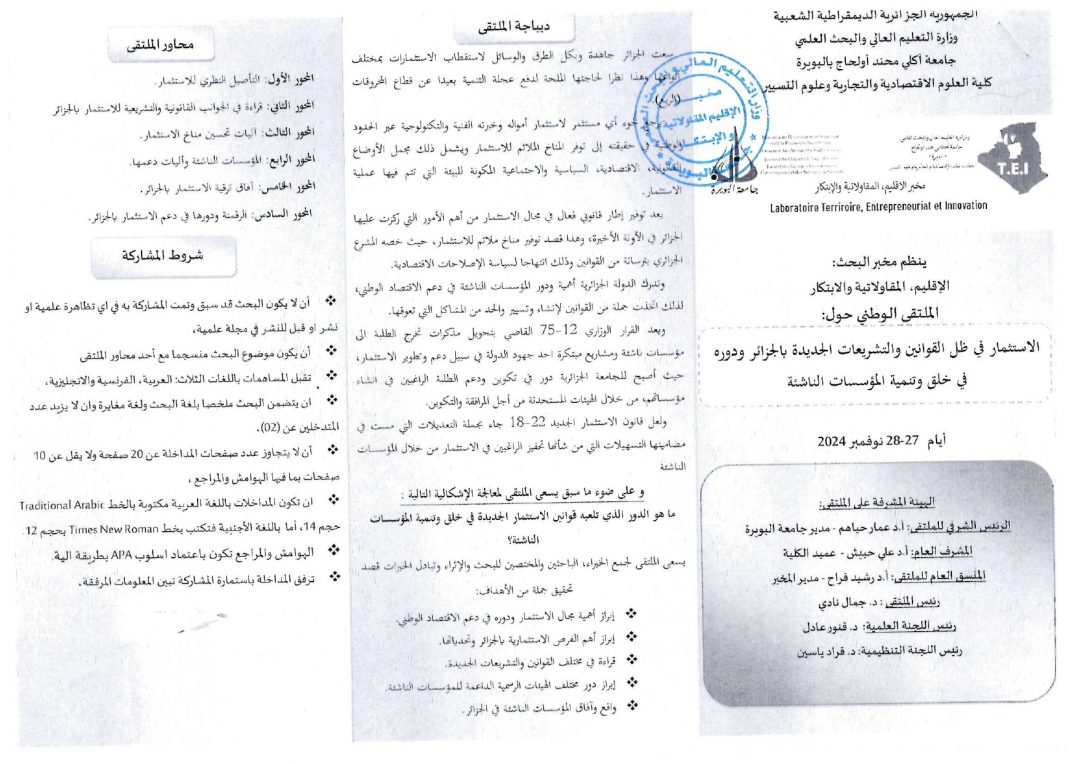 الجمهورية الجزائرية الديمقراطية الشعبية
وزارة التعليم العالي والبحث العلمي
جامعة أكلي محند أولحاج بالبويرة
كلية العلوم الاقتصادية والتجارية وعلوم التسيير
جامعة البويرة
T.E.I
مخبر الاقليم، المقاولاتية والإبتكار
Laboratoire Terriroire, Entrepreneuriat et Innovation
ينظم مخبر البحث:
الإقليم، المقاولاتية والابتكار
الملتقى الوطني حول:
الاستثمار في ظل القوانين والتشريعات الجديدة بالجزائر ودوره
في خلق وتنمية المؤسسات الناشئة
أيام 27-28 نوفمبر 2024
الهيئة المشرفة على الملتقى:
الرئيس الشرفي للملتقى: أ.د عمار حياهم - مدير جامعة البويرة
المشرف العام: أ.د علي حبيش - عميد الكلية
المنسق العام للملتقى: أ.د رشيد فراح - مدير المخبر
رئيس الملتقى : د. جمال نادي
رئيس اللجنة العلمية: د. قنور عادل
رئيس اللجنة التنظيمية: د. قراد ياسين
ديباجة الملتقى
سعت الجزائر جاهدة وبكل الطرق والوسائل لاستقطاب الاستثمارات بمختلف
أنواعها وهذا نظرا لحاجتها الملحة لدفع عجلة التنمية بعيدا عن قطاع المحروقات
(الريع).
لجوء أي مستثمر لاستثمار أمواله وخبرته الفنية والتكنولوجية عبر الحدود
الوطنية في حقيقته إلى توفر المناخ الملائم للاستثمار ويشمل ذلك مجمل الأوضاع
القانونية، الاقتصادية، السياسية والاجتماعية المكونة للبيئة التي تتم فيها عملية
الاستثمار.
يعد توفير إطار قانوني فعال في مجال الاستثمار من أهم الأمور التي ركزت عليها
الجزائر في الآونة الأخيرة، وهذا قصد توفير مناخ ملائم للاستثمار، حيث خصه المشرع
الجزائري بترسانة من القوانين وذلك انتهاجا لسياسة الإصلاحات الاقتصادية.
وتدرك الدولة الجزائرية أهمية ودور المؤسسات الناشئة في دعم الاقتصاد الوطني،
لذلك اتخذت جملة من القوانين لإنشاء وتسيير والحد من المشاكل التي تعوقها.
ويعد القرار الوزاري 12-75 القاضي بتحويل مذكرات تخرج الطلبة الى
مؤسسات ناشئة ومشاريع مبتكرة احد جهود الدولة في سبيل دعم وتطوير الاستثمار،
حيث أصبح للجامعة الجزائرية دور في تكوين ودعم الطلبة الراغبين في انشاء
مؤسساتهم، من خلال الهيئات المستحدثة من أجل المرافقة والتكوين.
ولعل قانون الاستثمار الجديد 22-18 جاء بجملة التعديلات التي مست في
مضامينها التسهيلات التي من شأنها تحفيز الراغبين في الاستثمار من خلال المؤسسات
الناشئة
و على ضوء ما سبق يسعى الملتقى لمعالجة الإشكالية التالية :
ما هو الدور الذي تلعبه قوانين الاستثمار الجديدة في خلق وتنمية المؤسسات
الناشئة؟
يسعى الملتقى لجمع الخبراء، الباحثين والمختصين للبحث والإثراء وتبادل الخبرات قصد
تحقيق جملة من الأهداف:
❖ إبراز أهمية مجال الاستثمار ودوره في دعم الاقتصاد الوطني.
❖ إبراز أهم الفرص الاستثمارية بالجزائر وتحدياتها.
❖ قراءة في مختلف القوانين والتشريعات الجديدة.
❖ إبراز دور مختلف الهيئات الرسمية الداعمة للمؤسسات الناشئة.
❖ واقع وآفاق المؤسسات الناشئة في الجزائر.
محاور الملتقى
المحور الأول: التأصيل النظري للاستثمار.
المحور الثاني: قراءة في الجوانب القانونية والتشريعية للاستثمار بالجزائر
المحور الثالث: آليات تحسين مناخ الاستثمار.
المحور الرابع: المؤسسات الناشئة وآليات دعمها.
المحور الخامس: آفاق ترقية الاستثمار بالجزائر.
المحور السادس: الرقمنة ودورها في دعم الاستثمار بالجزائر.
شروط المشاركة
❖ أن لا يكون البحث قد سبق وتمت المشاركة به في اي تظاهرة علمية او
نشر او قبل للنشر في مجلة علمية،
❖ أن يكون موضوع البحث منسجما مع أحد محاور الملتقى
❖ تقبل المساهمات باللغات الثلاث: العربية، الفرنسية والانجليزية،
❖ ان يتضمن البحث ملخصا بلغة البحث ولغة مغايرة وان لا يزيد عدد
المتدخلين عن (02)،
❖ أن لا يتجاوز عدد صفحات المداخلة عن 20 صفحة ولا يقل عن 10
صفحات بما فيها الهوامش والمراجع ،
❖ ان تكون المداخلات باللغة العربية مكتوبة بالخط Traditional Arabic
حجم 14، أما باللغة الأجنبية فتكتب بخط Times New Roman بحجم 12.
❖ الهوامش والمراجع تكون باعتماد اسلوب APA بطريقة الية.
❖ ترفق المداخلة باستمارة المشاركة تبين المعلومات المرفقة،